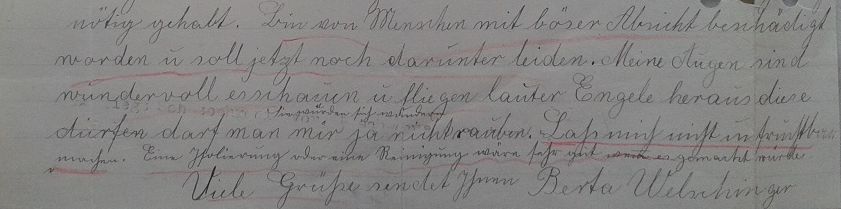 nötig gehabt. Bin von Menschen mit böser Absicht beschädigt
worden u soll jetzt noch darunter leiden. Meine Augen sind
wundervoll es schauen u fliegen lauter Engele heraus diese
Sie würden sich wundern
dürfen darf man mir ja nicht rauben. Laß mich nicht unfruchtbar
machen. Eine Isolierung oder eine Reinigung wäre sehr gut wenn es gemacht würde
Viele Grüße sendet Ihnen Berta Welschinger